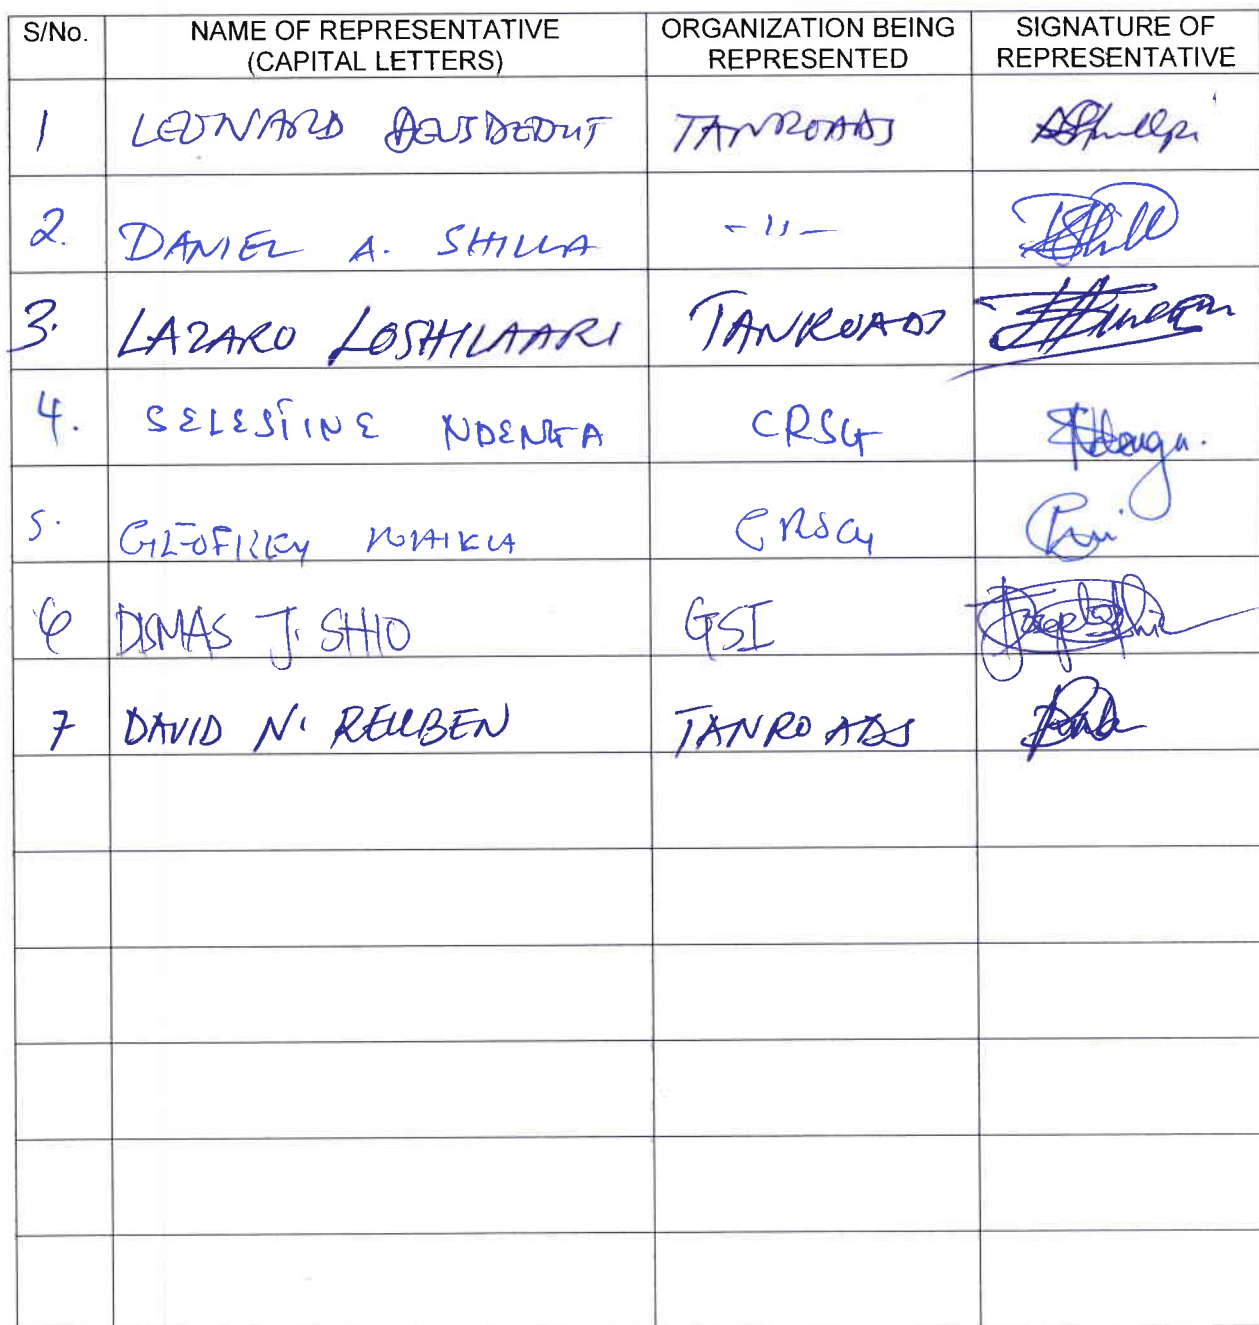 S/No. NAME OF REPRESENTATIVE (CAPITAL LETTERS) ORGANIZATION BEING REPRESENTED SIGNATURE OF REPRESENTATIVE
1 LEONARD TANROADS
2. DANIEL A. SHILLA - 11 -
3. LAZARO LOSHILAARI TANROADS
4. SELESTINE NDENGA CRSG
5. GEOFREY CRSG
6 DISMAS J. SHIO GSI
7 DAVID N. REUBEN TANROADS